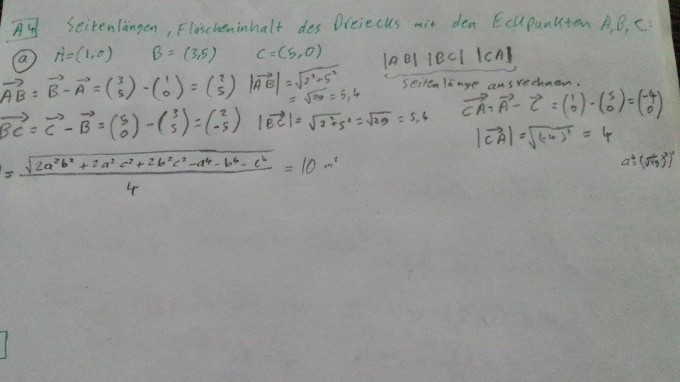 A4 Seitenlängen, Flächeninhalt des Dreiecks mit den Eckpunkten A,B,C:
ⓐ A=(1,0) B = (3,5) C=(5,0) |AB| |BC| |CA|
Seitenlänge ausrechnen.
AB⃗ = B⃗ - A⃗ = (3 5) - (1 0) = (2 5) |AB⃗| = √2²+5²
= √29 = 5,4
BC⃗ = C⃗ - B⃗ = (5 0) - (3 5) = (2 -5) |BC⃗| = √2²+5² = √29 = 5,4
CA⃗ = A⃗ - C⃗ = (1 0) - (5 0) = (-4 0)
|CA⃗| = √(-4)² = 4
= √2a²b² + 2a²c² + 2b²c² - a⁴ - b⁴ - c⁴ / 4 = 10